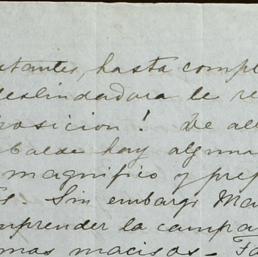 stantes, hasta comple
deslindadora le re
posicion! De all
balde hay alguna
magnifico y prep
s. Sin embargo Ma
mprender la campa
mas macisos - Fa